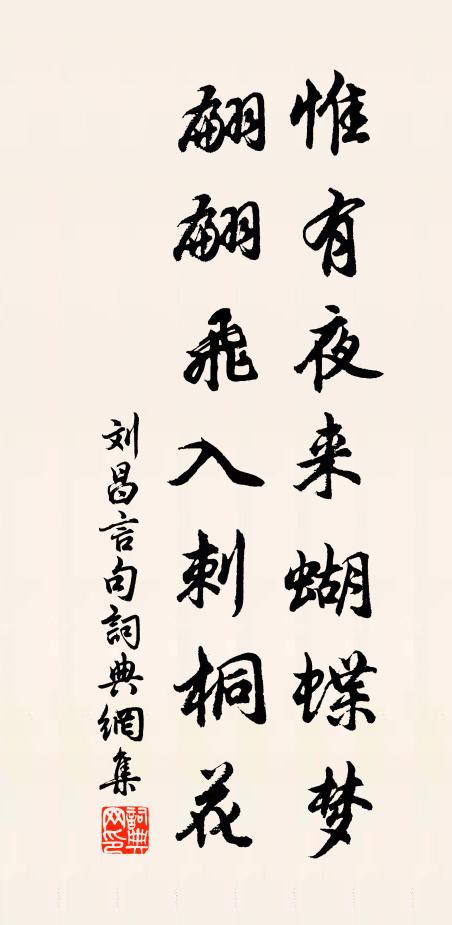 惟有夜来蝴蝶梦
翩翩飛入刺桐花
刘昌言句詞典網集
詞典
网印